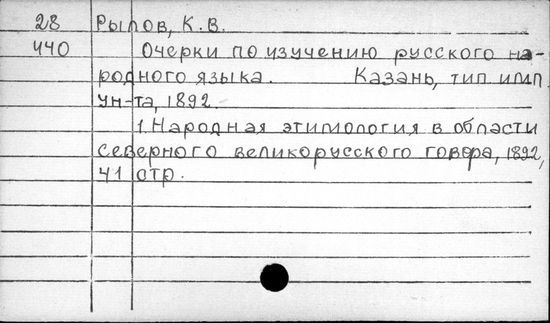 28 Рылов, К.В.
440 Очерки по изучению русского на-
родного языка. Казань, тип. имп.
ун-та, 1892.
1. Народная этимология в области
северного великорусского говора, 1892,
41 стр.